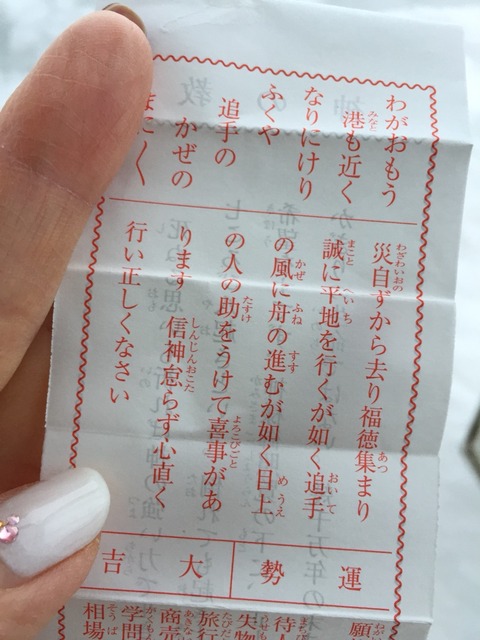 わがおもう
港も近く
なりにけり
ふくや
追手の
かぜの
まに〱
災自ずから去り福徳集まり
誠に平地を行くが如く追手
の風に舟の進むが如く目上
の人の助をうけて喜事があ
ります 信神怠らず心直く
行い正しくなさい
運勢
大吉
願
待人
失物
旅行
商売
学問
相場